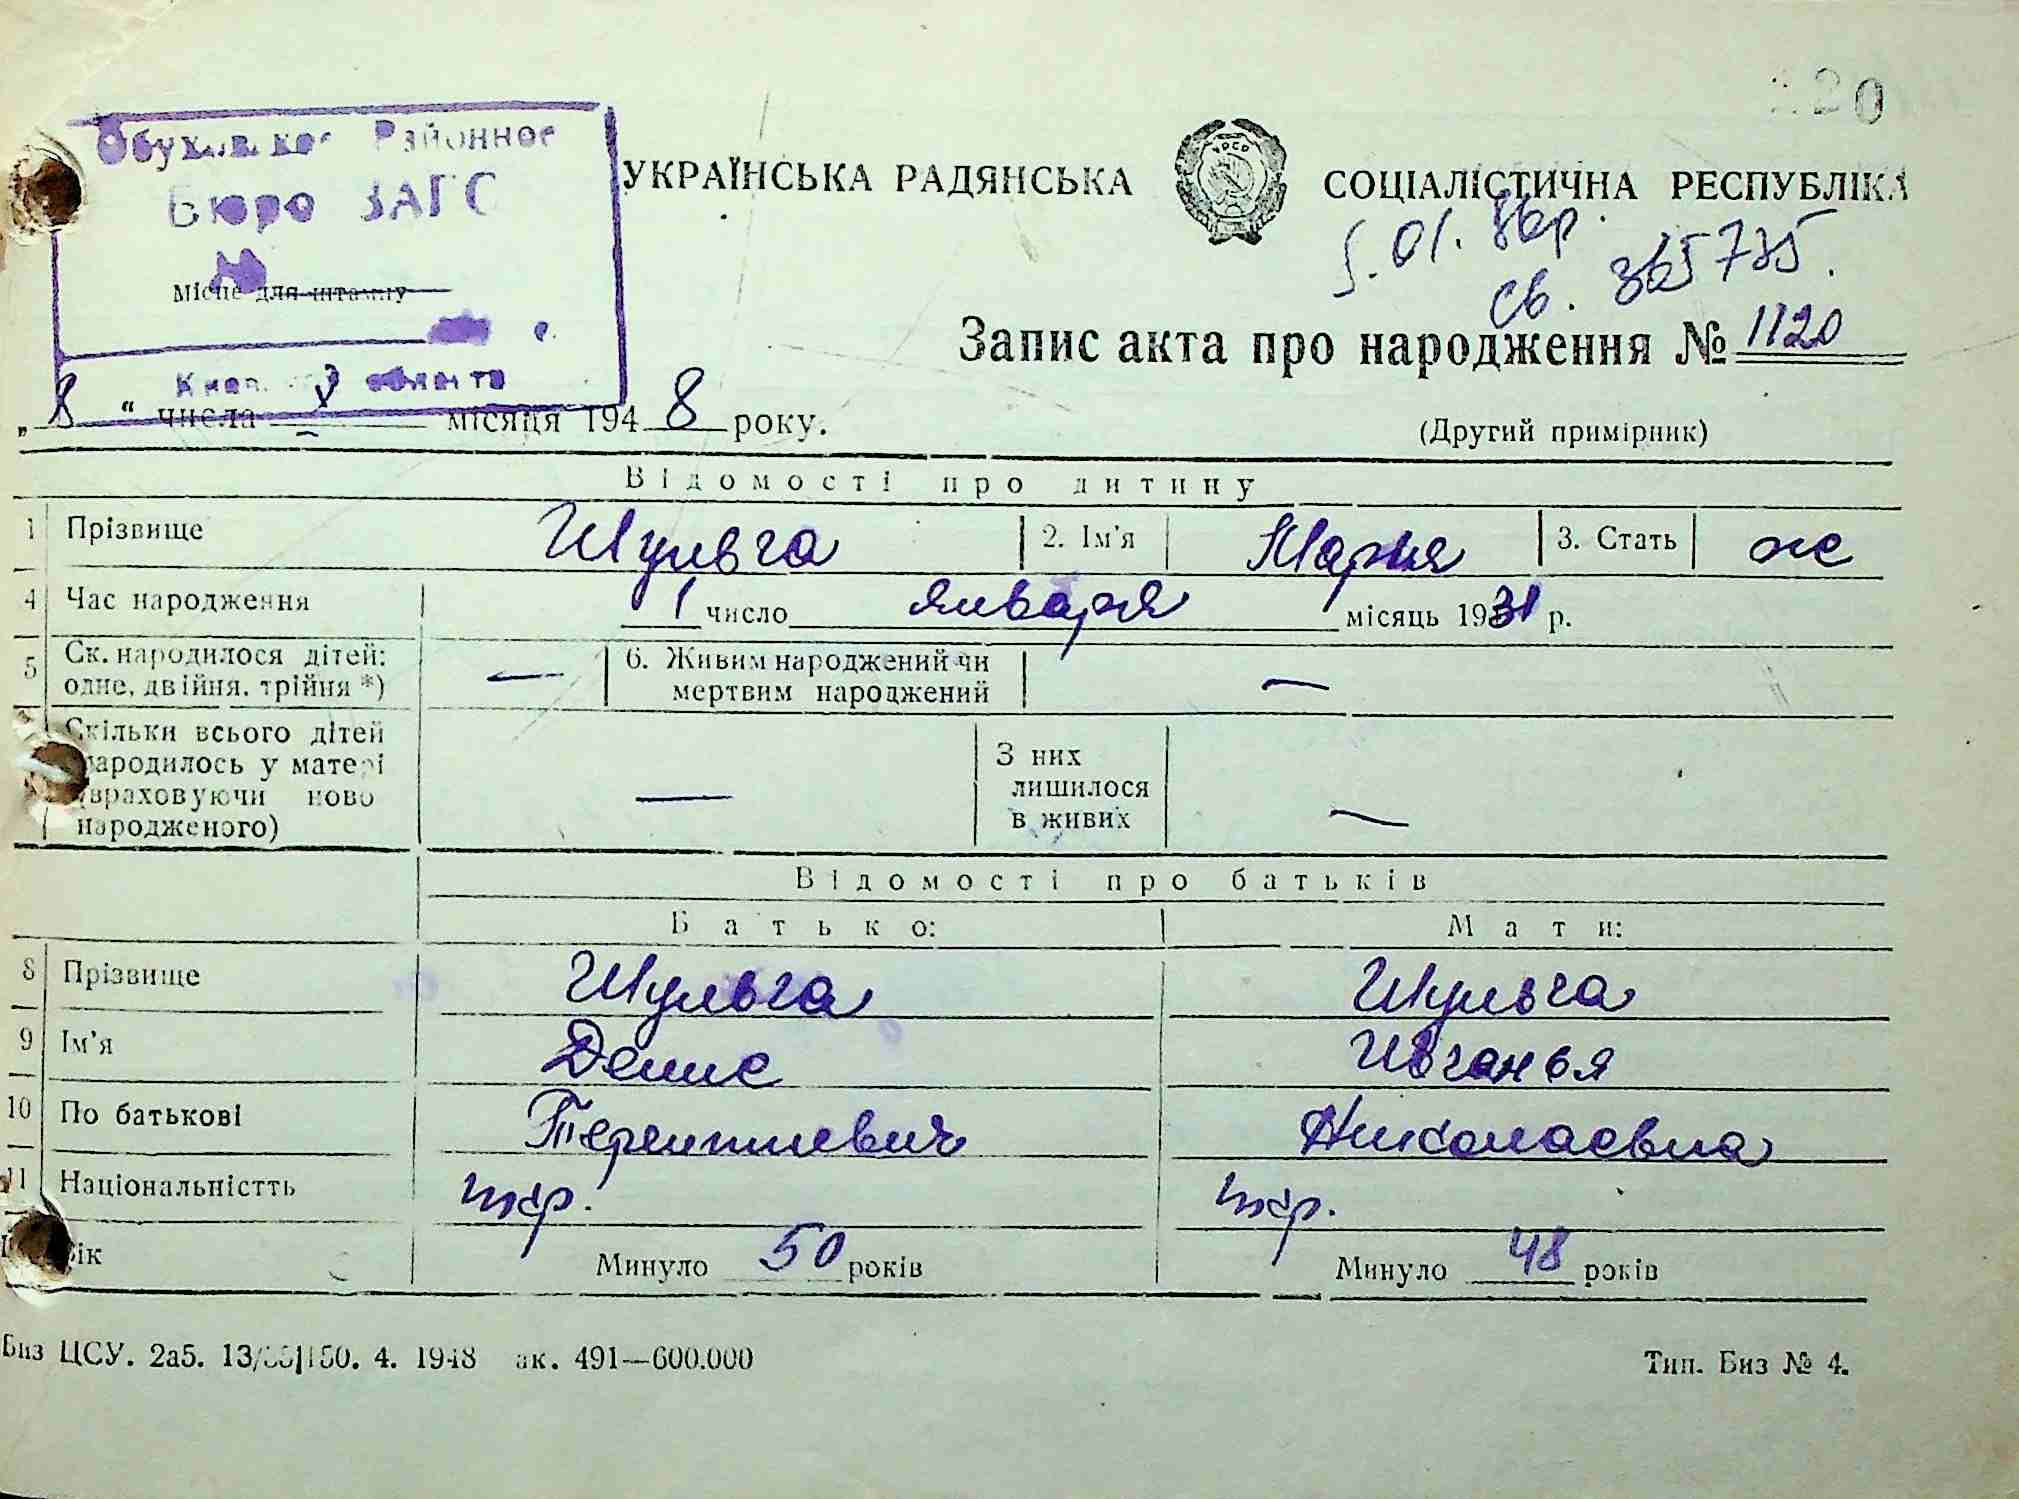 220
Районное
Бюро ЗАГС
УКРАЇНСЬКА РАДЯНСЬКА СОЦІАЛІСТИЧНА РЕСПУБЛІКА
5.01. 86р.
св. 365735.
Місце для штампу
Запис акта про народження № 1120
области
„8“ числа X місяця 1948 року.
(Другий примірник)
Відомості про дитину
1 Прізвище Шульга 2. Ім'я Мария 3. Стать ж
4 Час народження 1 число января місяць 1931 р.
5 Ск. народилося дітей: — 6. Живим народжений чи —
одне, двійня, трійня *) мертвим народжений
Скільки всього дітей З них
народилось у матері — лишилося —
(враховуючи ново в живих
народженого)
Відомості про батьків
Батько: Мати:
8 Прізвище Шульга Шульга
9 Ім'я Денис Ивганья
10 По батькові Терентиевич Николаевна
11 Національністть укр. укр.
Вік Минуло 50 років Минуло 48 років
Биз ЦСУ. 2а5. 150. 4. 1948 ак. 491—600.000 Тип. Биз № 4.